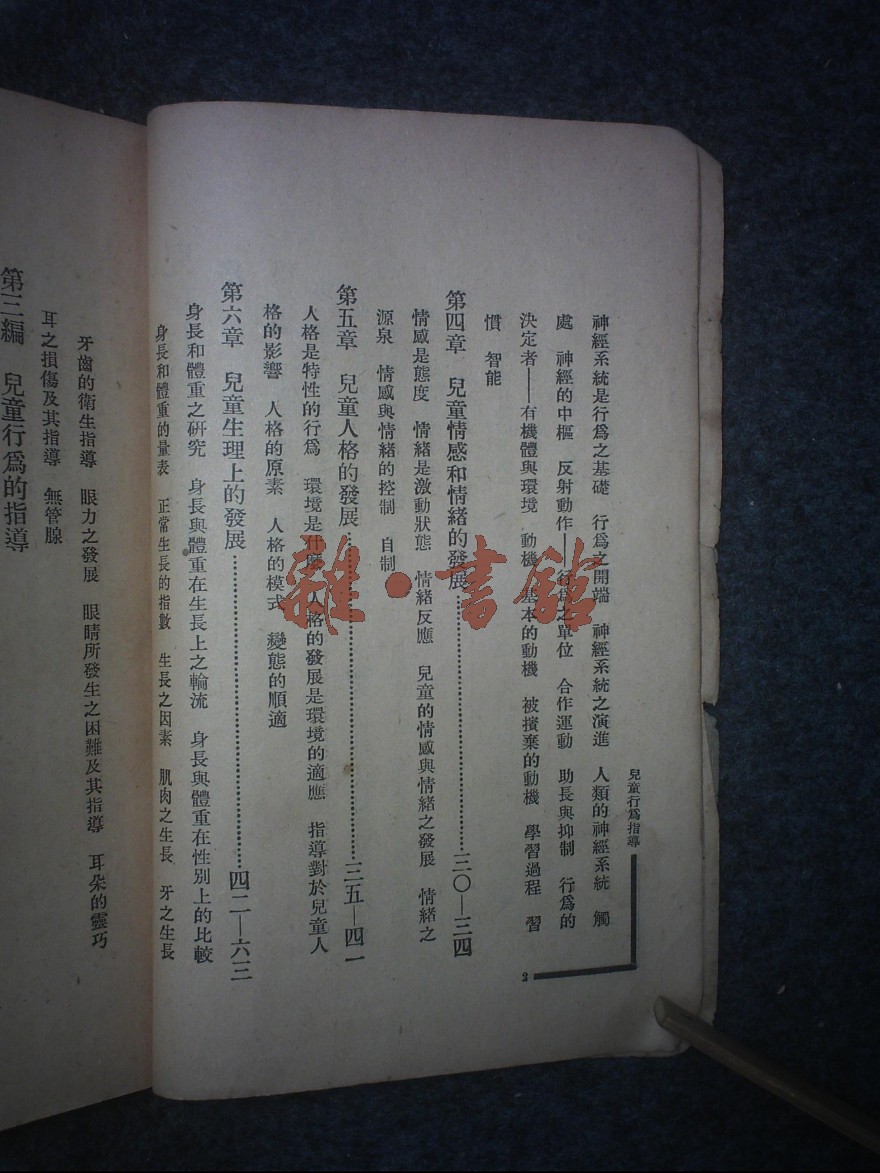 兒童行爲指導
2
神經系統是行爲之基礎　行爲之開端　神經系統之演進　人類的神經系統　觸
處　神經的中樞　反射動作——行爲之單位　合作運動　助長與抑制　行爲的
決定者——有機體與環境　動機　基本的動機　被擯棄的動機　學習過程　習
慣　智能
第四章　兒童情感和情緒的發展……三〇—三四
情感是態度　情緒是激動狀態　情緒反應　兒童的情感與情緒之發展　情緒之
源泉　情感與情緒的控制　自制
第五章　兒童人格的發展……三五—四一
人格是特性的行爲　環境是什麼　人格的發展是環境的適應　指導對於兒童人
格的影響　人格的原素　人格的模式　變態的順適
第六章　兒童生理上的發展……四二—六三
身長和體重之研究　身長與體重在生長上之輪流　身長與體重在性別上的比較
身長和體重的量表　正常生長的指數　生長之因素　肌肉之生長　牙之生長
牙齒的衞生指導　眼力之發展　眼睛所發生之困難及其指導　耳朵的靈巧
耳之損傷及其指導　無管腺
第三編　兒童行爲的指導
雜·書館